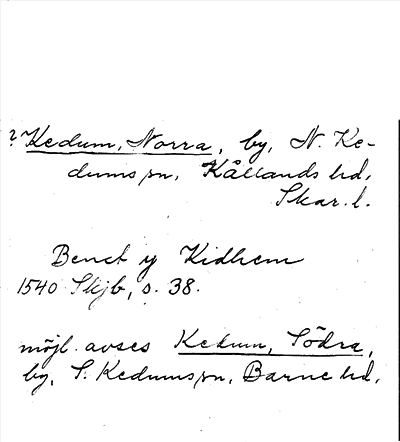 ? Kedum, Norra, by, N. Ke-
dums sn, Kållands hd,
Skar. l.
Benct y Kidhem
1540 Skjb, s. 38.
möjl. avses Kedum, Södra,
by, S. Kedums sn, Barne hd,